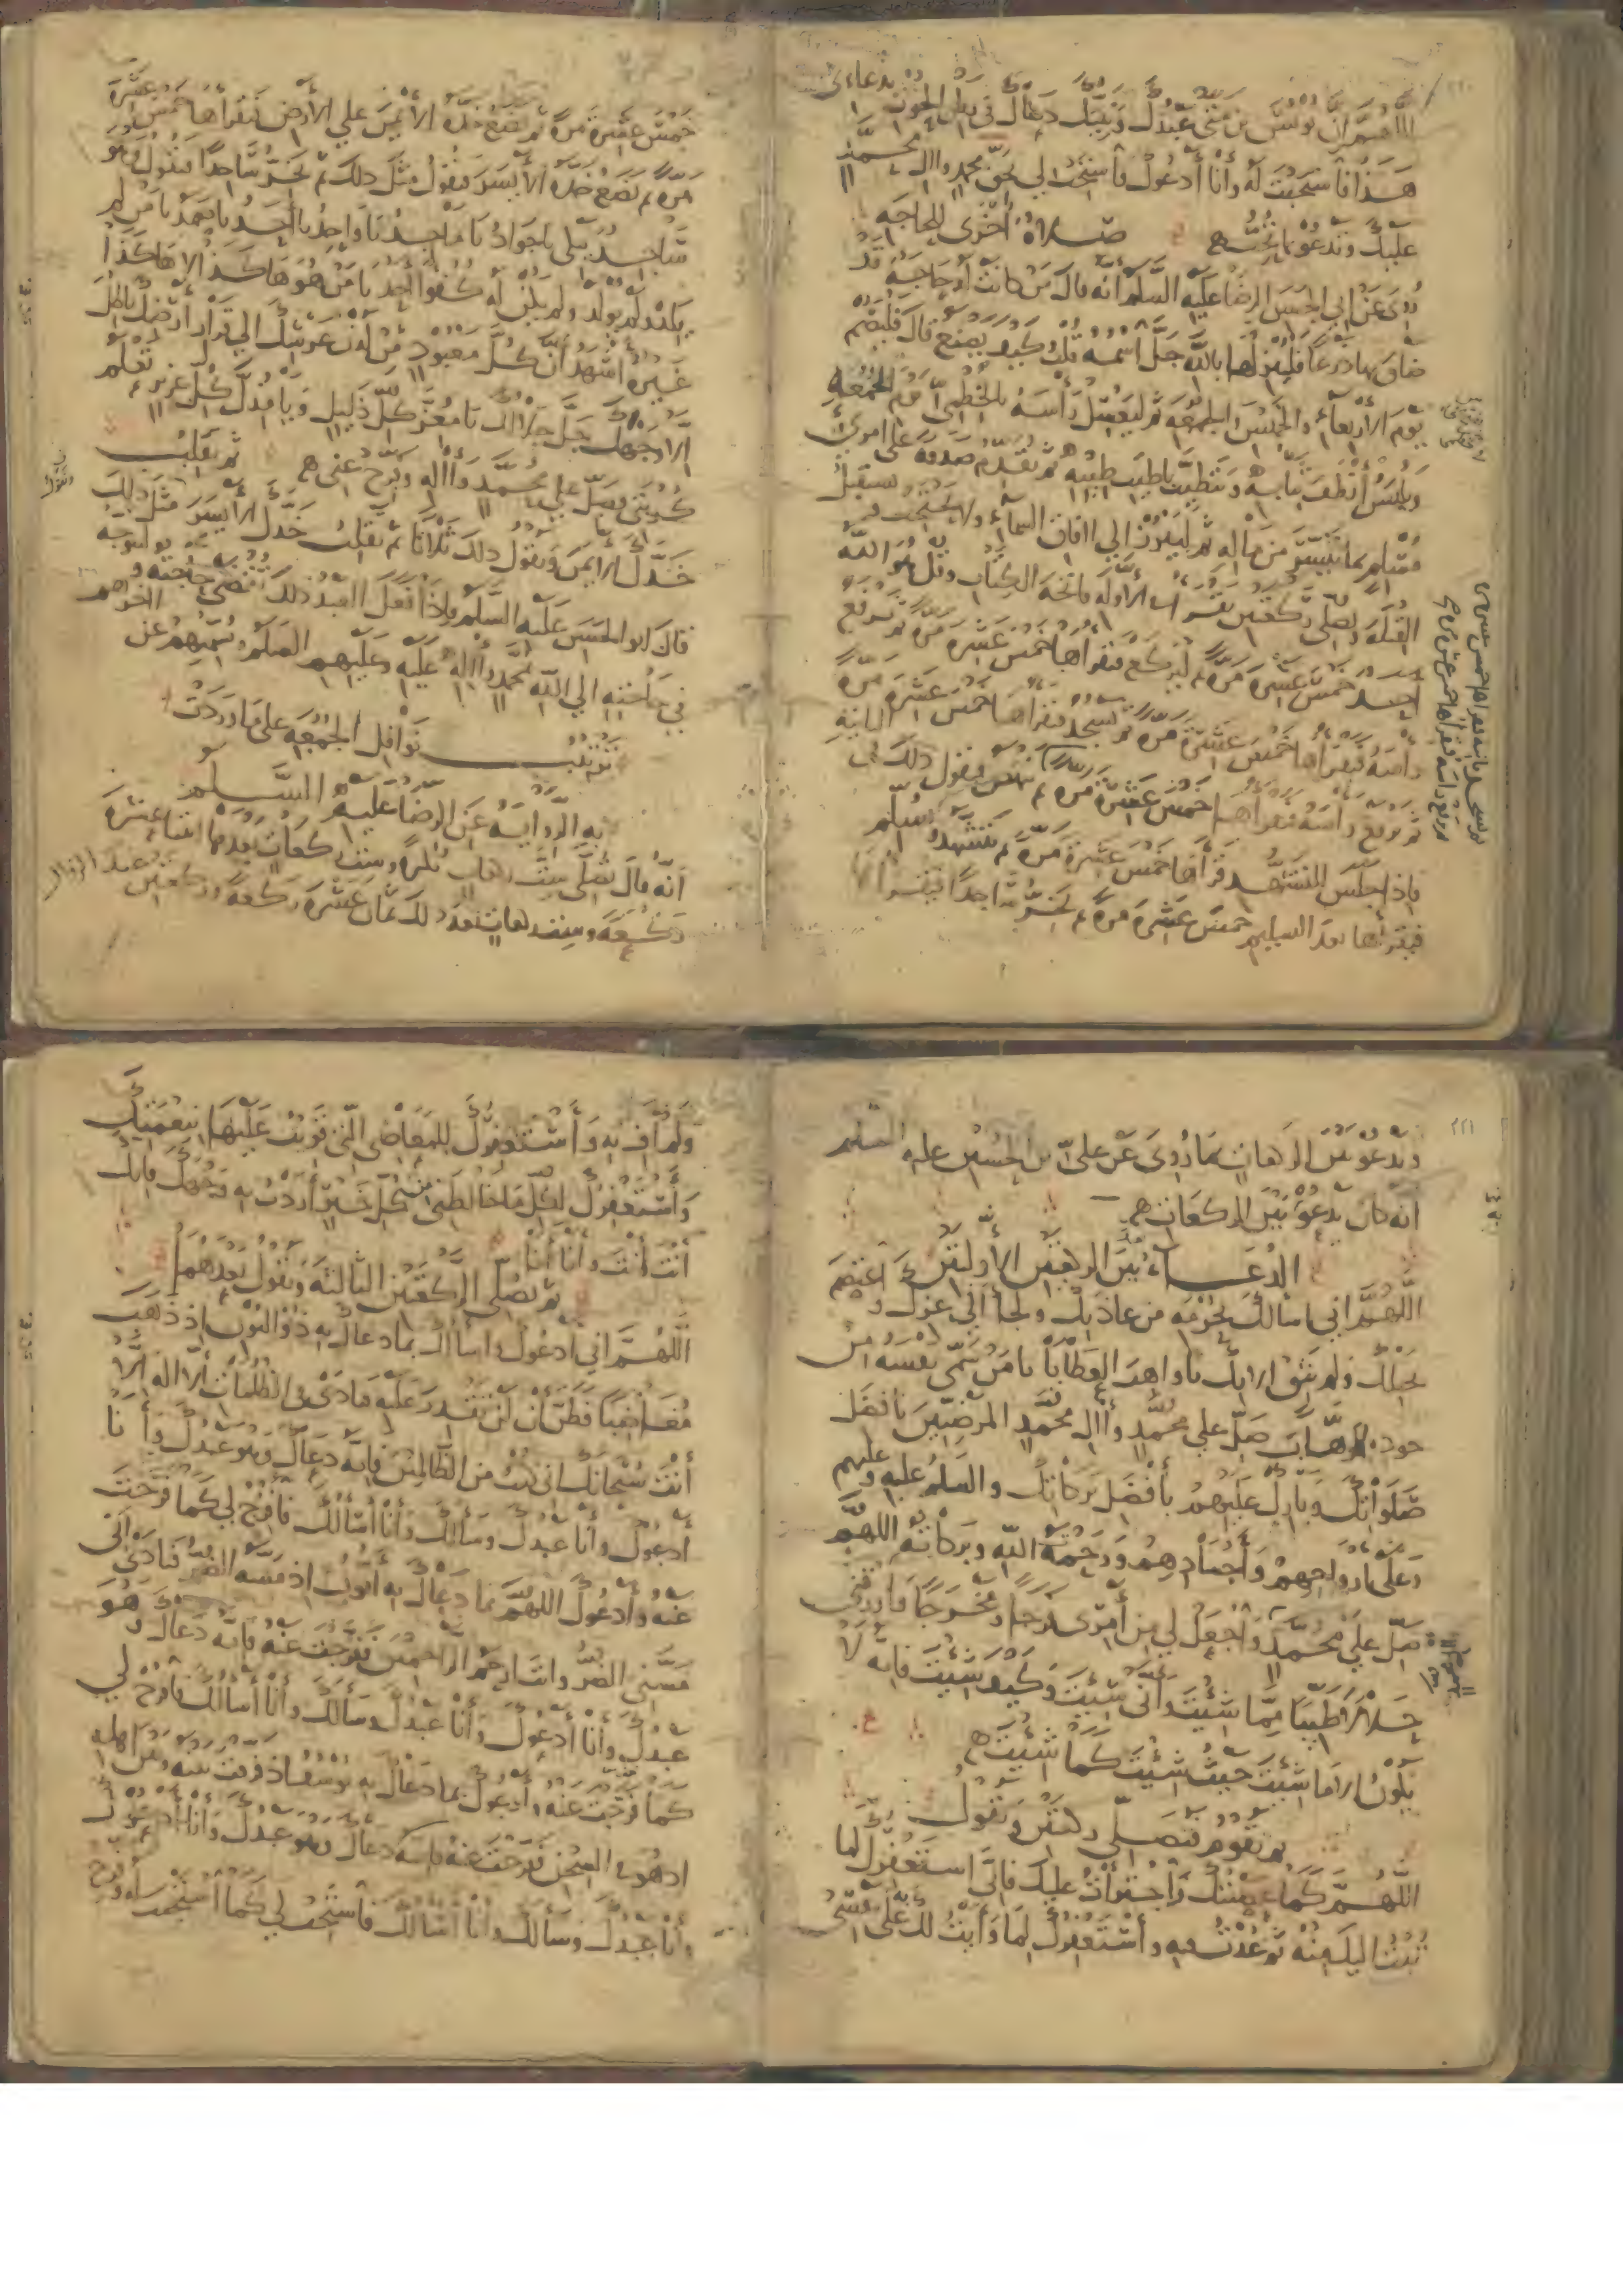 اللهم ان يونس بن متى عبدك ونبيك دعاك في بطن الحوت بدعائي
هذا فاستجبت له وأنا أدعوك فاستجب لي بحق محمد وال محمد
عليك وتدعو بما تحب صلاة أخرى للحاجه
روى عن ابي الحسن الرضا عليه السلم أنه قال من كانت له حاجة قد
ضاق بها ذرعا فلينزلها بالله جل اسمه قلت وكيف يصنع قال فليصم
يوم الأربعاء والخميس والجمعه ثم ليغسل رأسه بالخطمي يوم الجمعة
ويلبس أنظف ثيابه ويتطيب باطيب طيبه ثم يقدم صدقة على امرئ
مسلم بما تيسر من ماله ثم ليبرز الى افاق السماء ولا يحتجب ويستقبل
القبلة ويصلي ركعتين يقرأ في الأولة فاتحة الكتاب وقل هو الله
احد خمس عشرة مرة ثم ليركع فيقرأها خمس عشرة مرة ثم يرفع
رأسه فيقرأها خمس عشرة مرة ثم يسجد فيقرأها خمس عشرة مرة
ثم يرفع رأسه فيقرأها خمس عشرة مرة ثم ينهض فيقول ذلك في الثانية
فاذا جلس للتشهد قرأها خمس عشرة مرة ثم يتشهد ويسلم
فيقرأها بعد التسليم خمس عشرة مرة ثم يخر ساجدا فيقرأها
ثم يسجد ثانيه فيقرأها خمس عشره مره
ثم يرفع رأسه فيقرأها خمس عشره مره
خمس عشرة مرة ثم يضع خده الأيمن على الأرض فيقرأها خمس عشرة
مرة ثم يضع خده الأيسر فيقول مثل ذلك ثم يخر ساجدا فيقول وهو
ساجد يبكي يا جواد يا ماجد يا واحد يا أحد يا صمد يا من لم
يلد ولم يولد ولم يكن له كفوا أحد يا من هو هاكذا لا هاكذا
غيره أشهد أن كل معبود من لدن عرشك الى قرار أرضك باطل
الا وجهك جل جلالك يا معز كل ذليل ويا مذل كل عزيز تعلم
كربتي فصل على محمد وأله وفرج عني ثم تقلب
خدك الأيمن وتقول ذلك ثلاثا ثم تقلب خدك الأيسر مثل ذلك
قال ابو الحسن عليه السلم فاذا فعل العبد ذلك تقضى حاجته وليتوجه
في حاجته الى الله بمحمد وأله عليه وعليهم السلم ويسميهم عن اخرهم
ترتيب نوافل الجمعة على ما وردت
به الرواية عن الرضا عليه السلم
أنه قال تصلى ست ركعات بكرة وست ركعات بعدها اثنتا عشرة
ركعة وست ركعات بعد ذلك ثمان عشرة ركعة وركعتين عند الزوال
٢٢١
وتدعو بين الركعات بما روى عن على بن الحسين عليه السلم
انه كان يدعو بين الركعات
الدعاء بين الركعتين الأولتين
اللهم اني اسالك بحرمة من عاذ بك ولجأ الى عزك واعتصم
بحبلك ولم يثق الا بك يا واهب العطايا يا من سمى نفسه من
جوده الوهاب صل على محمد وأل محمد المرضيين بأفضل
صلواتك وبارك عليهم بأفضل بركاتك والسلم عليه وعليهم
وعلى أرواحهم وأجسادهم ورحمة الله وبركاته اللهم
صل على محمد واجعل لي من أمري فرجا ومخرجا وارزقني
حلالا طيبا مما شئت وأنى شئت وكيف شئت فانه لا
يكون الا ما شئت حيث شئت كما شئت
ثم تقوم فتصلي ركعتين وتقول
اللهم كما عصيتك واجترأت عليك فاني استغفرك لما
تبت اليك منه ثم عدت فيه وأستغفرك لما وأيت لك على نفسى
ولم أف به وأستغفرك للمعاصي التي قويت عليها بنعمتك
وأستغفرك لكل ما خالطني من كل خير أردت به وجهك فانك
أنت أنت وأنا أنا
ثم تصلي الركعتين الثالثة وتقول بعدهما
اللهم اني أدعوك واسألك بما دعاك به ذو النون إذ ذهب
مغاضبا فظن أن لن نقدر عليه فنادى في الظلمات ألا اله الا
أنت سبحانك اني كنت من الظالمين فانه دعاك وهو عبدك وأنا
أدعوك وأنا عبدك وسألك وأنا أسألك فافرج لي كما فرجت
عنه وأدعوك اللهم بما دعاك به أيوب اذ مسه الضر فنادى أنى
مسنى الضر وانت ارحم الراحمين ففرجت عنه فانه دعاك وهو
عبدك وأنا أدعوك وأنا عبدك وسألك وأنا أسألك فافرج لي
كما فرجت عنه وأدعوك بما دعاك به يوسف اذ فرقت بينه وبين اهله
اذ هو في السجن ففرجت عنه فانه دعاك وهو عبدك وأنا أدعوك
وأنا عبدك وسألك وأنا أسالك فاستجب لي كما استجبت له وفرج